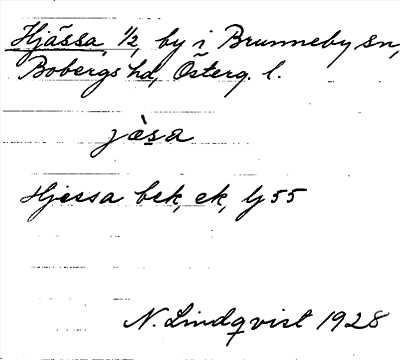 Hjässa, 1/2, by i Brunneby sn,
Bobergs hd, Österg. l.
jȁsa
Hjessa bek, ek, lj 55
N. Lindqvist 1928